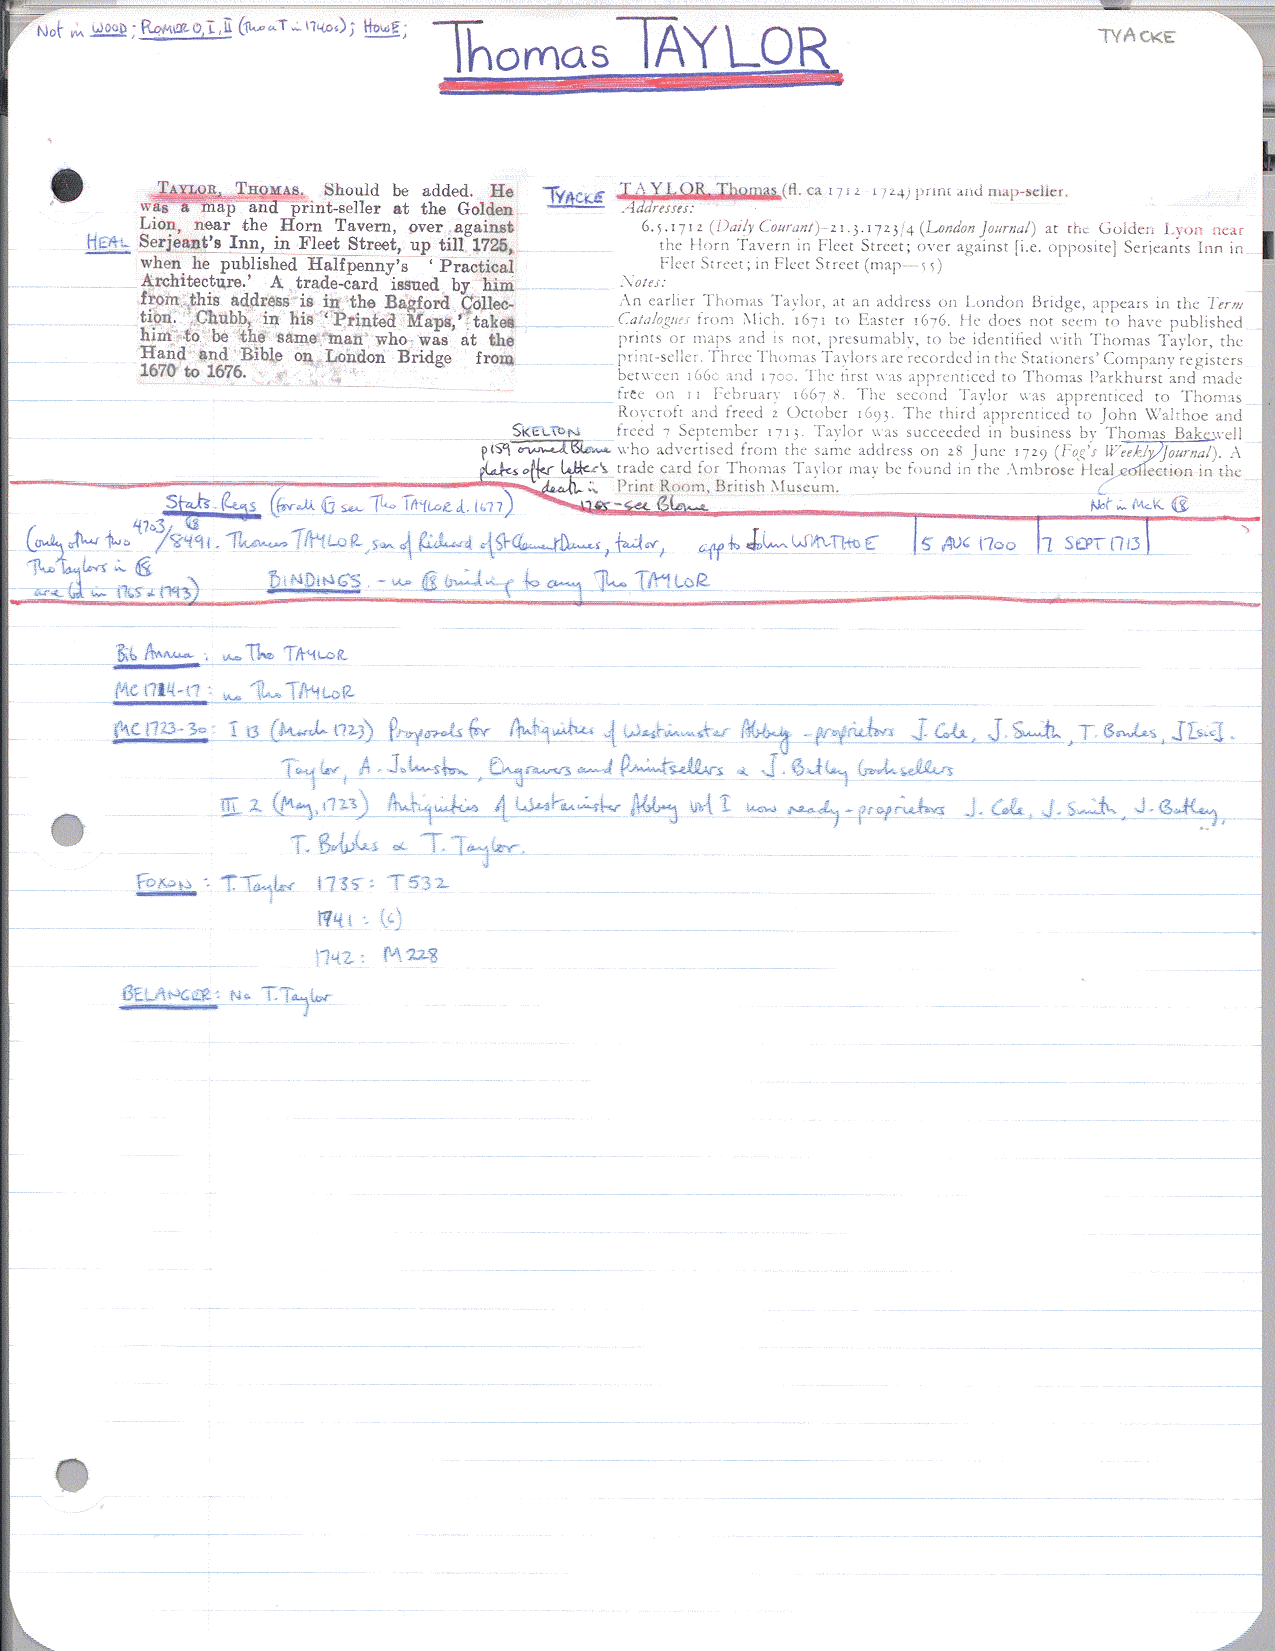 Not in WOOD; PLOMER 0, I, II (Tho a T in 1740s); HOWE;
Thomas TAYLOR
TYACKE
HEAL
TAYLOR, THOMAS. Should be added. He
was a map and print-seller at the Golden
Lion, near the Horn Tavern, over against
Serjeant's Inn, in Fleet Street, up till 1725,
when he published Halfpenny's ‘Practical
Architecture.’ A trade-card issued by him
from this address is in the Bagford Collec-
tion. Chubb, in his ‘Printed Maps,’ takes
him to be the same man who was at the
Hand and Bible on London Bridge from
1670 to 1676.
TYACKE
TAYLOR, Thomas (fl. ca 1712-1724) print and map-seller.
Addresses:
6.5.1712 (Daily Courant)-21.3.1723/4 (London Journal) at the Golden Lyon near
the Horn Tavern in Fleet Street; over against [i.e. opposite] Serjeants Inn in
Fleet Street; in Fleet Street (map—55)
Notes:
An earlier Thomas Taylor, at an address on London Bridge, appears in the Term
Catalogues from Mich. 1671 to Easter 1676. He does not seem to have published
prints or maps and is not, presumably, to be identified with Thomas Taylor, the
print-seller. Three Thomas Taylors are recorded in the Stationers' Company registers
between 1660 and 1700. The first was apprenticed to Thomas Parkhurst and made
free on 11 February 1667/8. The second Taylor was apprenticed to Thomas
Roycroft and freed 2 October 1693. The third apprenticed to John Walthoe and
freed 7 September 1713. Taylor was succeeded in business by Thomas Bakewell
who advertised from the same address on 28 June 1729 (Fog's Weekly Journal). A
trade card for Thomas Taylor may be found in the Ambrose Heal collection in the
Print Room, British Museum.
SKELTON
p159 owned Blome
plates after latter's
death in
1705 - see Blome
Not in McK 18
Stats. Regs (for all 17 see Tho TAYLOR d. 1677)
(only other two
Tho Taylors in 18
are bd in 1765 & 1793)
4703/ 18
/8491. Thomas TAYLOR, son of Richard of St Clement Danes, tailor, app to John WALTHOE | 5 AUG 1700 | 7 SEPT 1713 |
BINDINGS - no 18 binding to any Tho TAYLOR
Bib Annua: no Tho TAYLOR
MC 1714-17: no Tho TAYLOR
MC 1723-30: I 13 (March 1723) Proposals for Antiquities of Westminster Abbey - proprietors J. Cole, J. Smith, T. Bowles, J [sic].
Taylor, A. Johnston, Engravers and Printsellers & J. Batley booksellers
III 2 (May, 1723) Antiquities of Westminster Abbey vol I now ready - proprietors J. Cole, J. Smith, J. Batley,
T. Bowles & T. Taylor.
FOXON: T. Taylor 1735: T532
1741: (c)
1742: M228
BELANGER: No T. Taylor